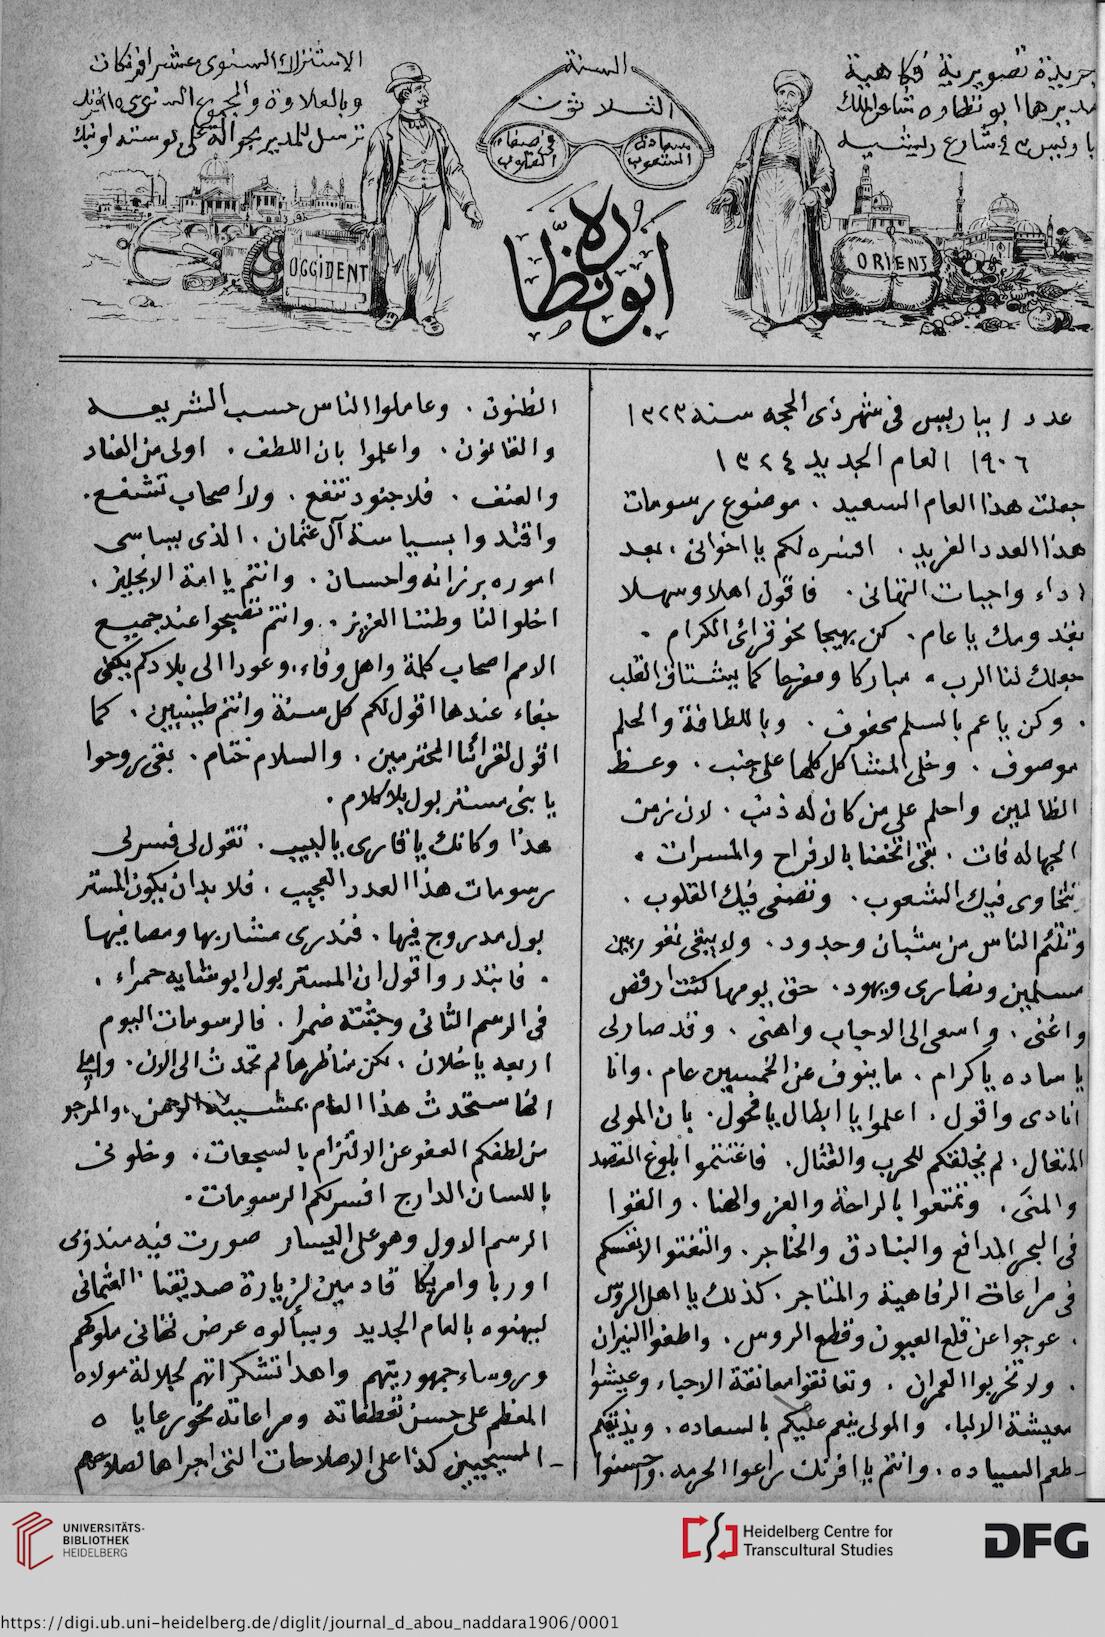 جريدة تصويرية فكاهية
مديرها ابو نظاره شاعر الملك
باريس ٤٣ شارع ريشيه
السنة
الثلاثون
سعادة الشعوب
في صفاء القلوب
ابو نظاره
الاشتراك السنوى عشر افرنكات
وبالعلاوة والمجموع السنوى ١٥ افرنك
ترسل للمدير بحوالة على بوسته او بنك
ORIENT
OCCIDENT
عدد ١ بباريس فى شهر ذى الحجه سنه ١٣٢٣
١٩٠٦ العام الجديد ١٣٢٤
جعلت هذا العام السعيد . موضوع رسومات
هذا العدد الفريد . افسره لكم يا اخوانى . بعد
اداء واجبات التهانى . فاقول اهلا وسهلا
بقدومك يا عام . كن بهيجا نحو قرائى الكرام .
جعلك لنا الرب . مباركا ومفرحا كما يشتاق القلب
. وكن يا عم بالسلم محفوف . وباللطافة والحلم
موصوف . وخلى المشاكل كلها على جنب . وعظ
الظالمين واحلم على من كان له ذنب . لان زمن
الجهاله فات . بقى اتحفنا بالافراح والمسرات .
تتخاوى فيك الشعوب . وتصفى فيك القلوب .
وتلتم الناس من شبان وجدود . ولا يبقى نفور بين
مسلمين ونصارى ويهود . حتى يومها كنت ارقص
واغنى . واسعى الى الاحباب واهنى . وقد صار لى
يا ساده يا كرام . ما ينوف عن الخمسين عام . وانا
انادى واقول . اعلموا يا ابطال يا فحول . بان المولى
المتعال . لم يخلقكم للحرب والقتال . فاغتنموا ابلوغ القصد
والمنى . وتمتعوا بالراحة والعز والهنا . والقوا
فى البحر المدافع والبنادق والخناجر . والتفتوا لانفسكم
فى مراعاة الرفاهية والمتاجر . كذلك يا اهل الروس
. عوجوا عن قلع العيون وقطع الروس . واطفوا النيران
. ولا تخربوا العمران . وتعانقوا معانقة الاحباء وعيشوا
معيشة الالباء . والمولى ينعم عليكم بالسعاده . ويذيقكم
طعم السياده . وانتم يا افرنك راعوا الحرمه . واحسنوا
الظنون . وعاملوا الناس حسب الشريعه
والقانون . واعلموا بان اللطف . اولى من العناد
والعنف . فلا جنود تنفع . ولا اصحاب تشفع .
واقتدوا بسياسة آل عثمان . الذى يساسى
اموره برزانه واحسان . وانتم يا امة الانجليز .
اخلوا لنا وطننا العزيز . وانتم تصبحوا عند جميع
الامم اصحاب كلمة واهل وفاء . وعودوا الى بلادكم يكفى
جفاء عندها اقول لكم كل سنة وانتم طيبيين . كما
اقول لقرائنا المحترمين . والسلام ختام . بقى روحوا
يا بنى مستر بول بلا كلام .
هذا وكانك يا قارى يا لبيب . تقول لى فسر لى
رسومات هذا العدد العجيب . فلا بد ان يكون المستر
بول مدروج فيها . فندرى مشاربها ومصافيها
. فابتدر واقول ان المستر بول ابو شنايه حمراء .
فى الرسم الثانى وجتته ضمرا . فالرسومات اليوم
اربعه يا خلان . لكن مناظرها لم تحدث الى الان . واملى
انها ستحدث هذا العام بمشيئة الرحمن . والمرجو
من لطفكم العفو عن الالتزام بالسجعات . وخلونى
باللسان الدارج افسر لكم الرسومات .
الرسم الاول وهو على اليسار صورت فيه مندوبى
اوربا وامريكا قادمين لزيارة صديقنا العثمانى
ليهنوه بالعام الجديد ويسألوه عرض تهانى ملوكهم
وروساء جمهوريتهم واهدا تشكراتهم لجلالة مولاه
المعظم على حسن تعطفاته ومراعاته نحو رعاياه
المسيحيين كذا على الاصلاحات التى اجراها لصلاحهم
UNIVERSITÄTS-
BIBLIOTHEK
HEIDELBERG
Heidelberg Centre for
Transcultural Studies
DFG
https://digi.ub.uni-heidelberg.de/diglit/journal_d_abou_naddara1906/0001